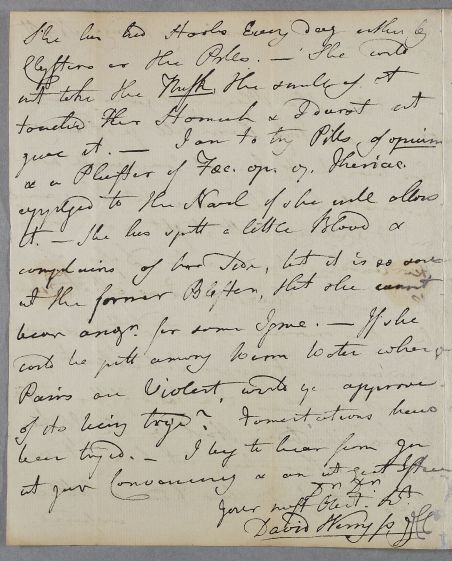 She has had Stools Every day either by
Clysters or the Pills. — She could
not take the Musk, the smell of it
touched Her Stomach & I durst not
give it. — I am to try Pills of opium
& a Plaster of Fæc. op. Theriac.
applyed to the Navel if she will allow
it. — She has spitt a little Blood &
complains of her Side, but it is so sore
at the former Blister, that she cannot
bear anoyr. for some Time. — If she
could be putt among Warm Water when ye
Pains are Violent, would ye approve
of its being tryed? Fomentations have
been tryed. — I beg to hear from you
at your Conveniency & am wt great Esteem
Dr Sir
your most Obedt. Sert
David Wemyss